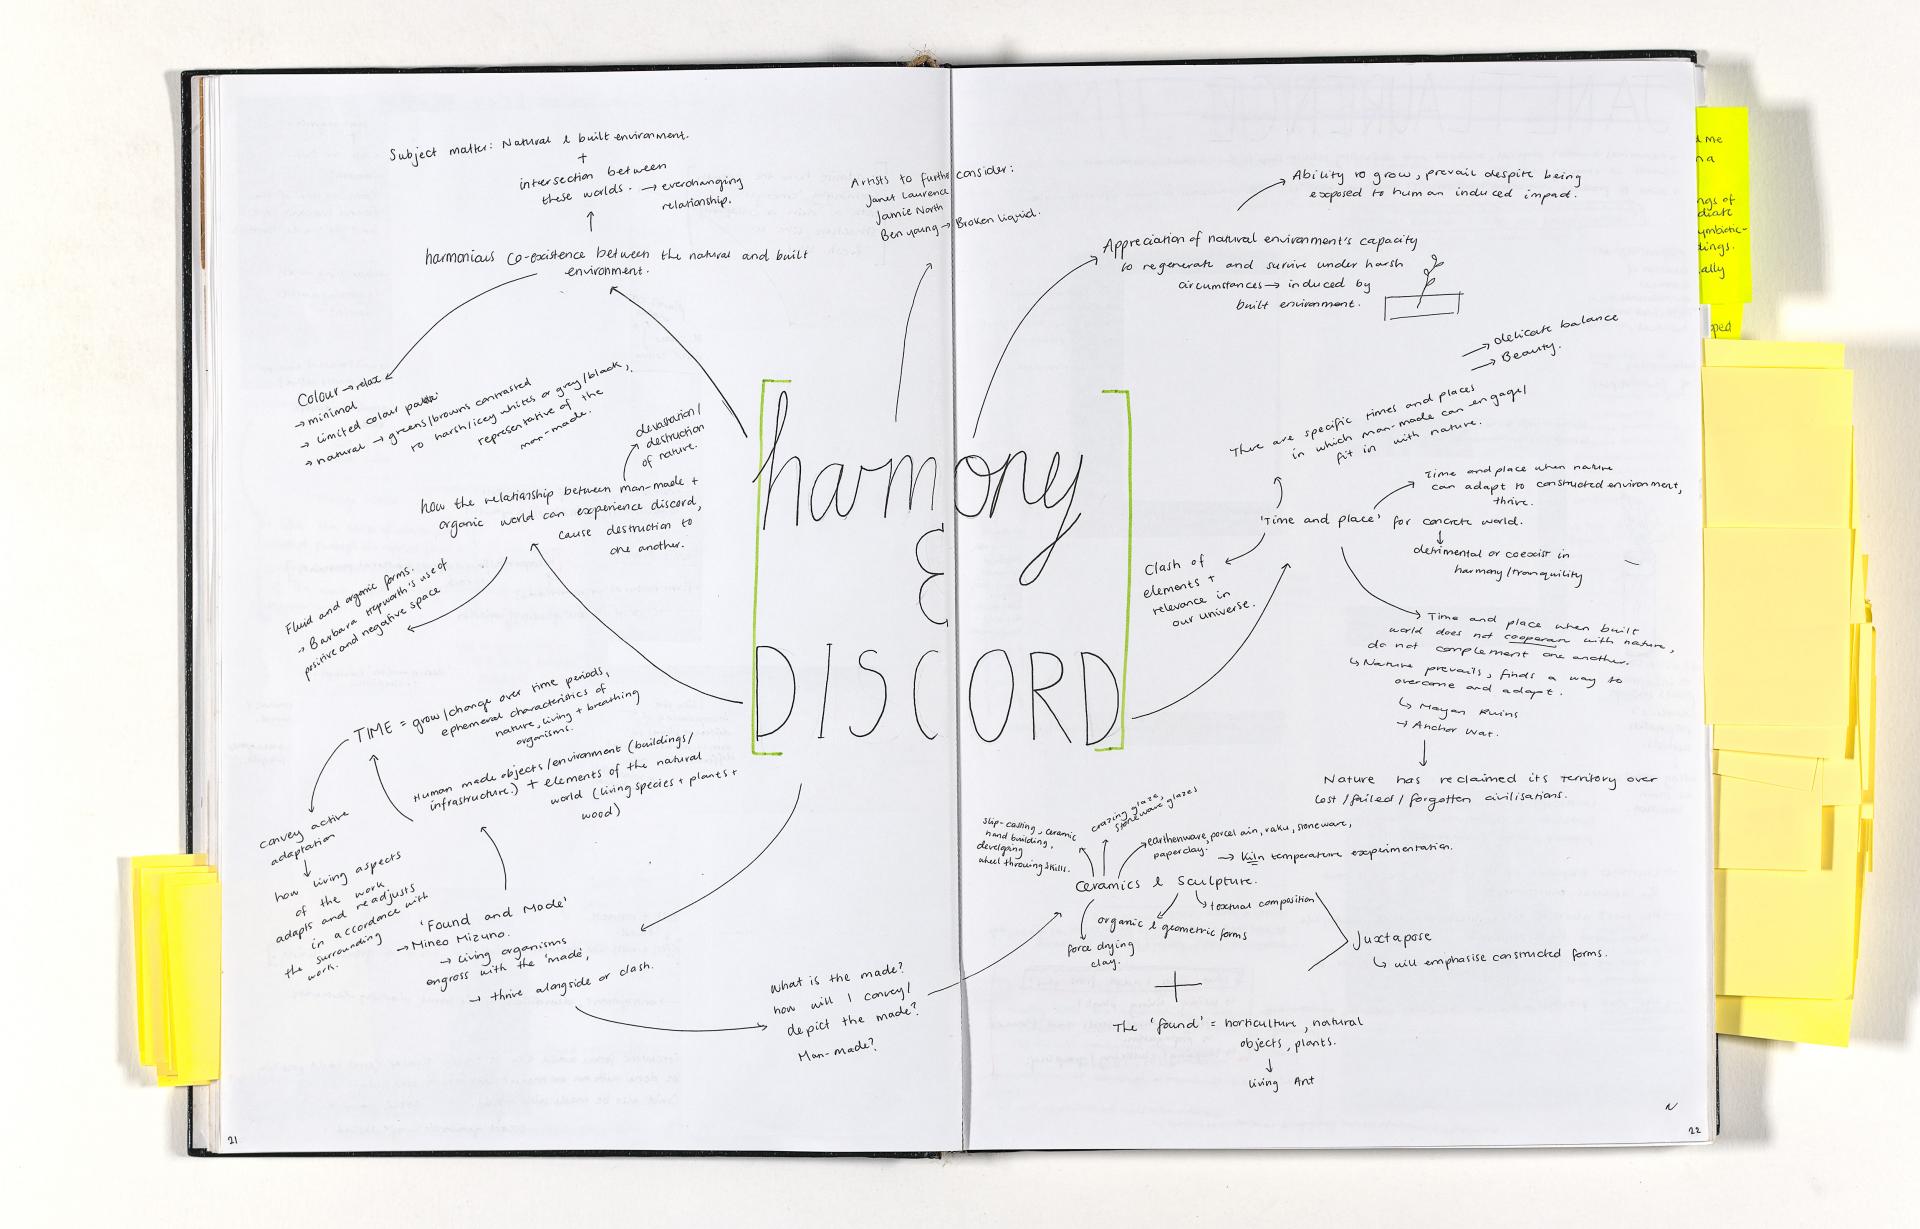 Subject matter: Natural & built environment.
+
intersection between
these worlds. → everchanging
relationship.
harmonious co-existence between the natural and built
environment.
Colour → relax
→ minimal
→ limited colour palette.
→ natural → greens/browns contrasted
to harsh/icey whites or grey/black,
representative of the
man-made.
devastation/
destruction
of nature.
how the relationship between man-made +
organic world can experience discord,
cause destruction to
one another.
Fluid and organic forms.
→ Barbara Hepworth's use of
positive and negative space
TIME = grow/change over time periods,
ephemeral characteristics of
nature, living + breathing
organisms.
Human made objects/environment (buildings/
infrastructure) + elements of the natural
world (living species + plants +
wood)
convey active
adaptation
how living aspects
of the work
adapts and readjusts
in accordance with
the surrounding
work.
'Found and Made'
→ Mineo Mizuno.
→ living organisms
engross with the 'made',
→ thrive alongside or clash.
What is the made?
how will I convey/
depict the made?
Man-made?
21
Artists to further consider:
Janet Laurence
Jamie North
Ben young → Broken liquid.
[harmony
&
DISCORD]
Ability to grow, prevail despite being
exposed to human induced impact.
Appreciation of natural environment's capacity
to regenerate and survive under harsh
circumstances → induced by
built environment.
→ delicate balance
→ Beauty.
There are specific times and places
in which man-made can engage/
fit in with nature.
Time and place when nature
can adapt to constructed environment,
thrive.
'Time and place' for concrete world.
detrimental or coexist in
harmony/tranquility
Clash of
elements +
relevance in
our universe.
Time and place when built
world does not cooperate with nature,
do not complement one another.
↳ Nature prevails, finds a way to
overcome and adapt.
↳ Mayan Ruins
→ Anchor Wat.
Nature has reclaimed its territory over
lost/failed/forgotten civilisations.
slip-casting, ceramic
hand building,
developing
wheel throwing skills.
crazing glaze,
stoneware glazes
earthenware, porcelain, raku, stoneware,
paperclay. → kiln temperature experimentation.
Ceramics & Sculpture.
↳ textual composition
organic & geometric forms
force drying
clay.
Juxtapose
↳ will emphasise constructed forms.
+
The 'found' = horticulture, natural
objects, plants.
living Art
N
22
me
ngs of
diate
ymbiotic-
dings.
ally
pped